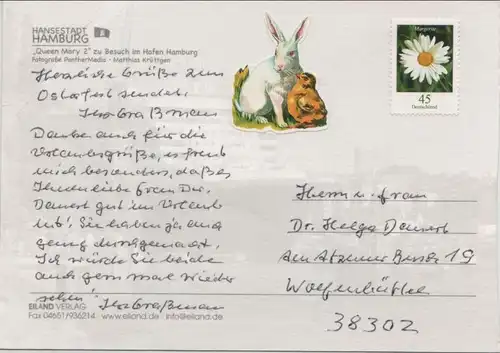 HANSESTADT
HAMBURG
„Queen Mary 2" zu Besuch im Hafen Hamburg
Fotografie PantherMedia - Matthias Krüttgen
Herzliche Grüße zum
Osterfest sendet
Danke auch für die
Urlaubsgrüße, es freut
mich besonders, daß es
Ihnen liebe Frau Dr.
gut im Urlaub
Sie haben ja auch
genug durchgemacht.
Ich würde Sie beide
auch gern mal wieder
sehen!
EILAND VERLAG
Fax 04651/936214 · www.eiland.de · info@eiland.de
45
Deutschland
Herrn u. Frau
Dr. Helga
Am Atzumer Busch 19
Wolfenbüttel
38302